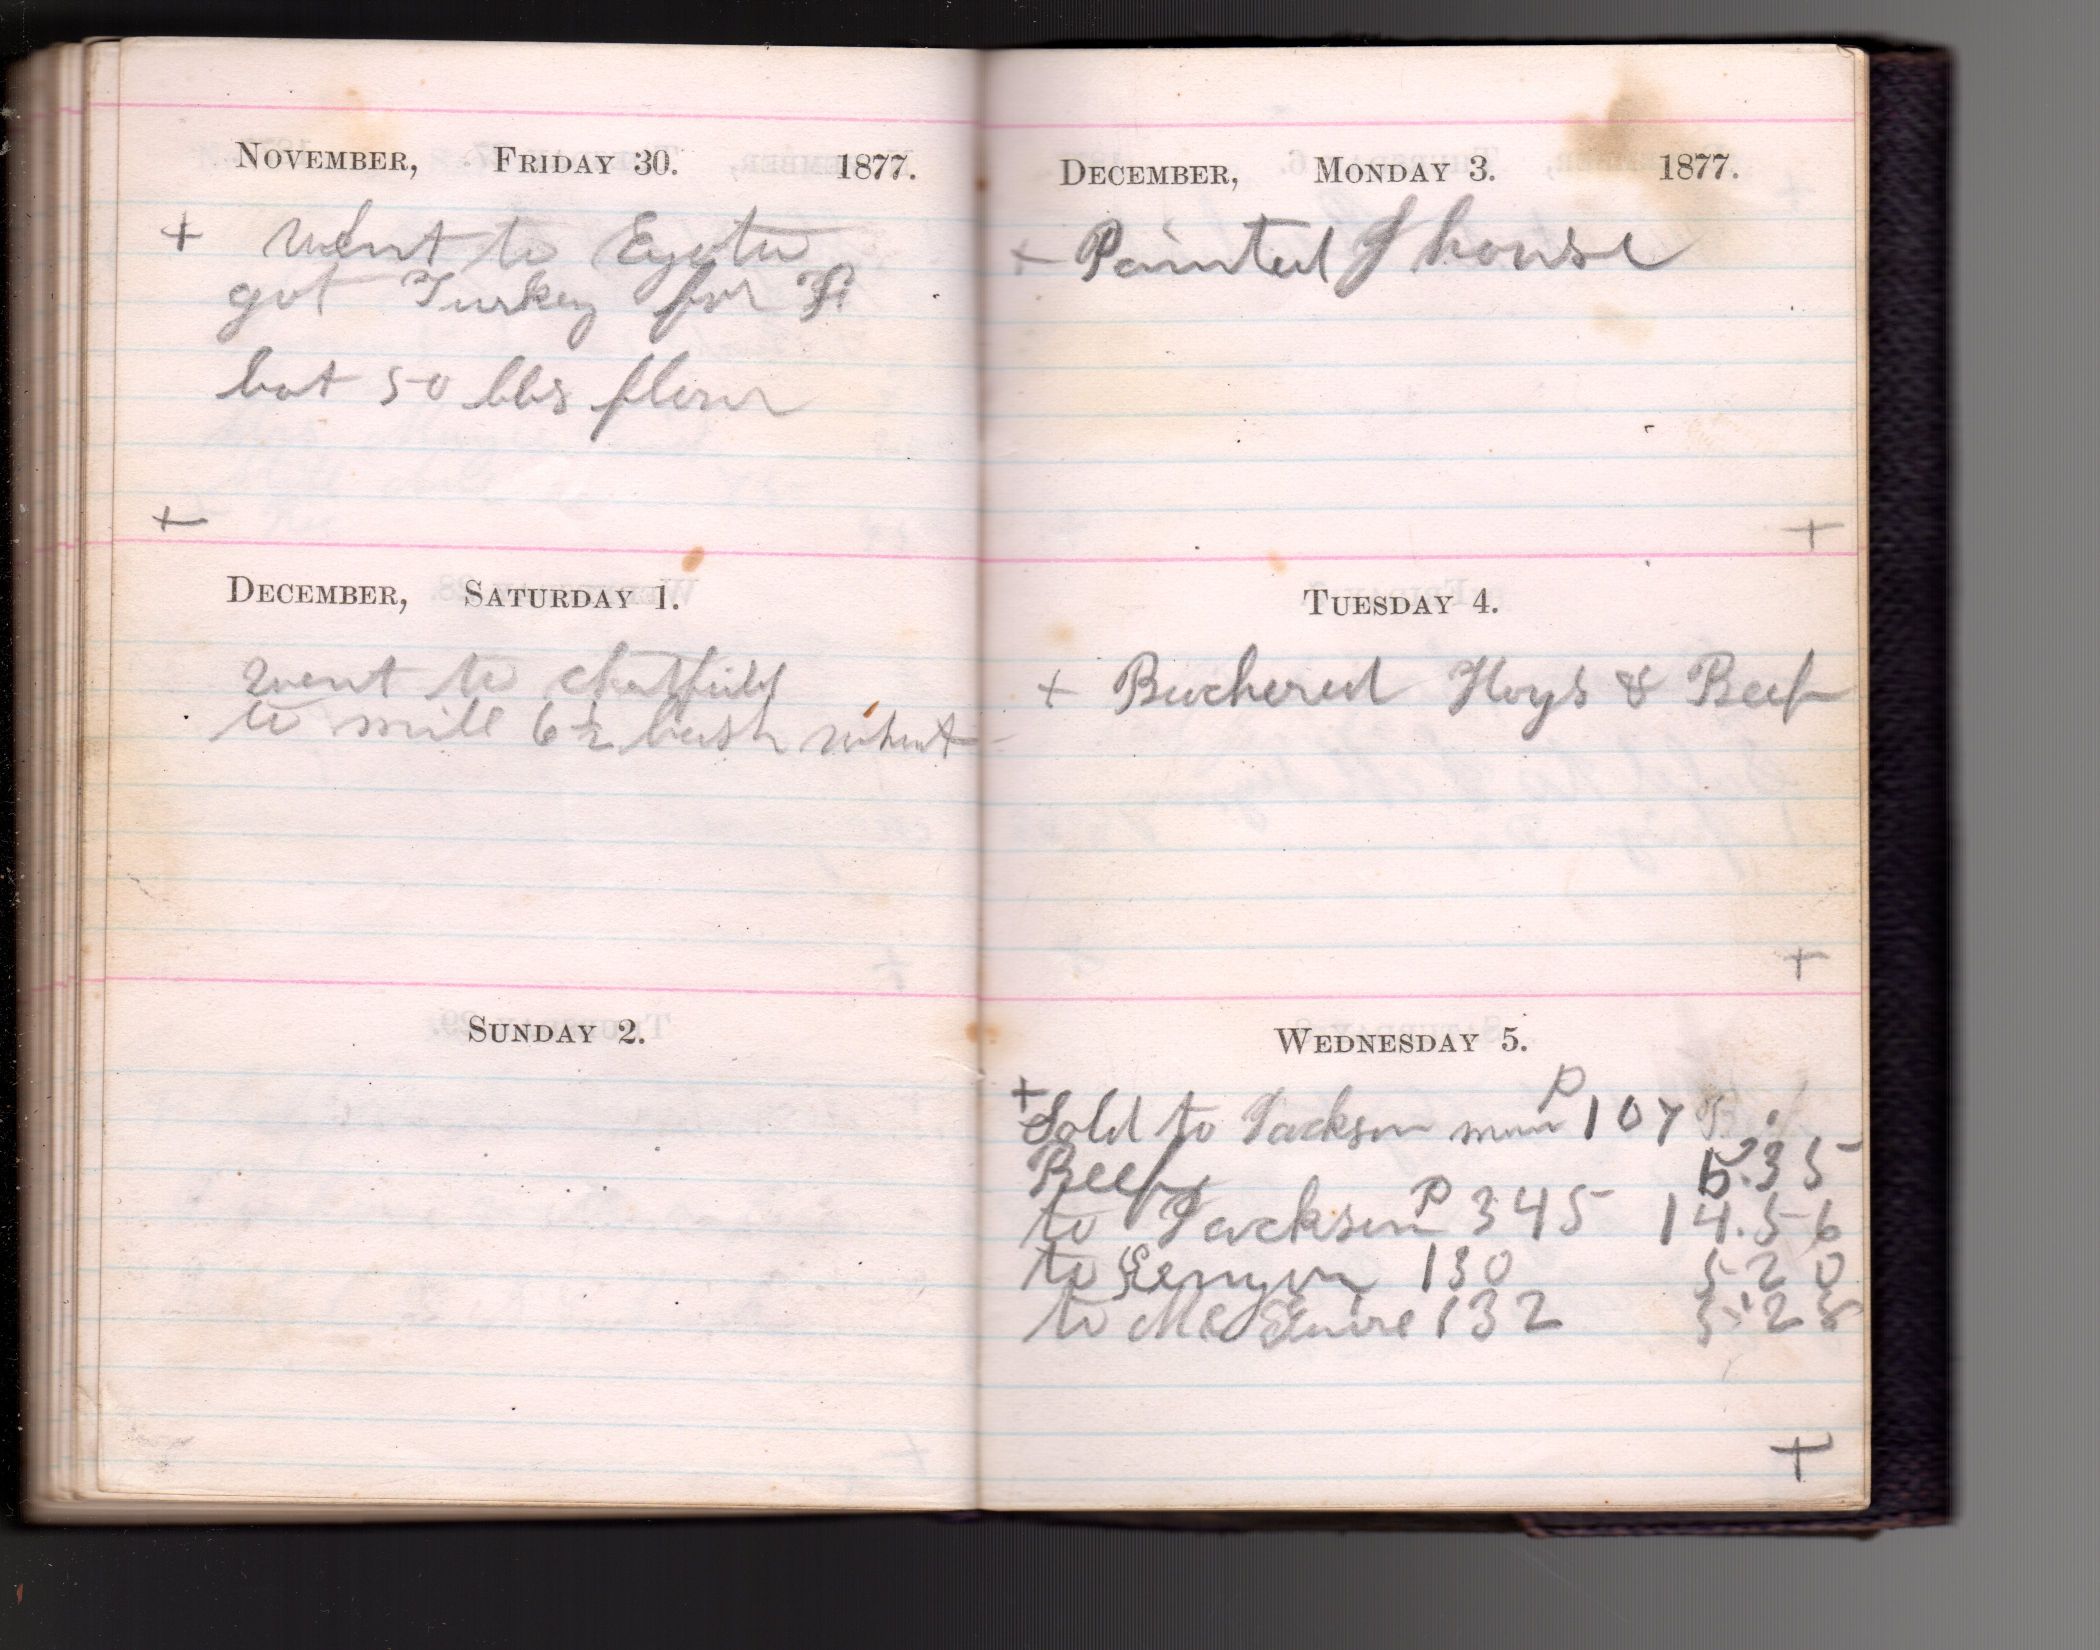 NOVEMBER, FRIDAY 30. 1877.
+ Went to Eyota
got Turkey for
bot 50 lbs flour
+
DECEMBER, SATURDAY 1.
went to chatfield
to mill 6 1/2 bush wheat
SUNDAY 2.
DECEMBER, MONDAY 3. 1877.
+ Painted house
+
TUESDAY 4.
+ Buchered Hogs & Beef
+
WEDNESDAY 5.
+ P
Sold to Jackson man 107
Beef 5.35
to Jackson P 345 14.56
to Kenyon 130 5 20
to McGuire 132 5.28
+